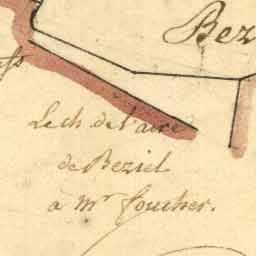 Bez
ss
Le ch. de l'aire
de Beziel
a Mr foucher.